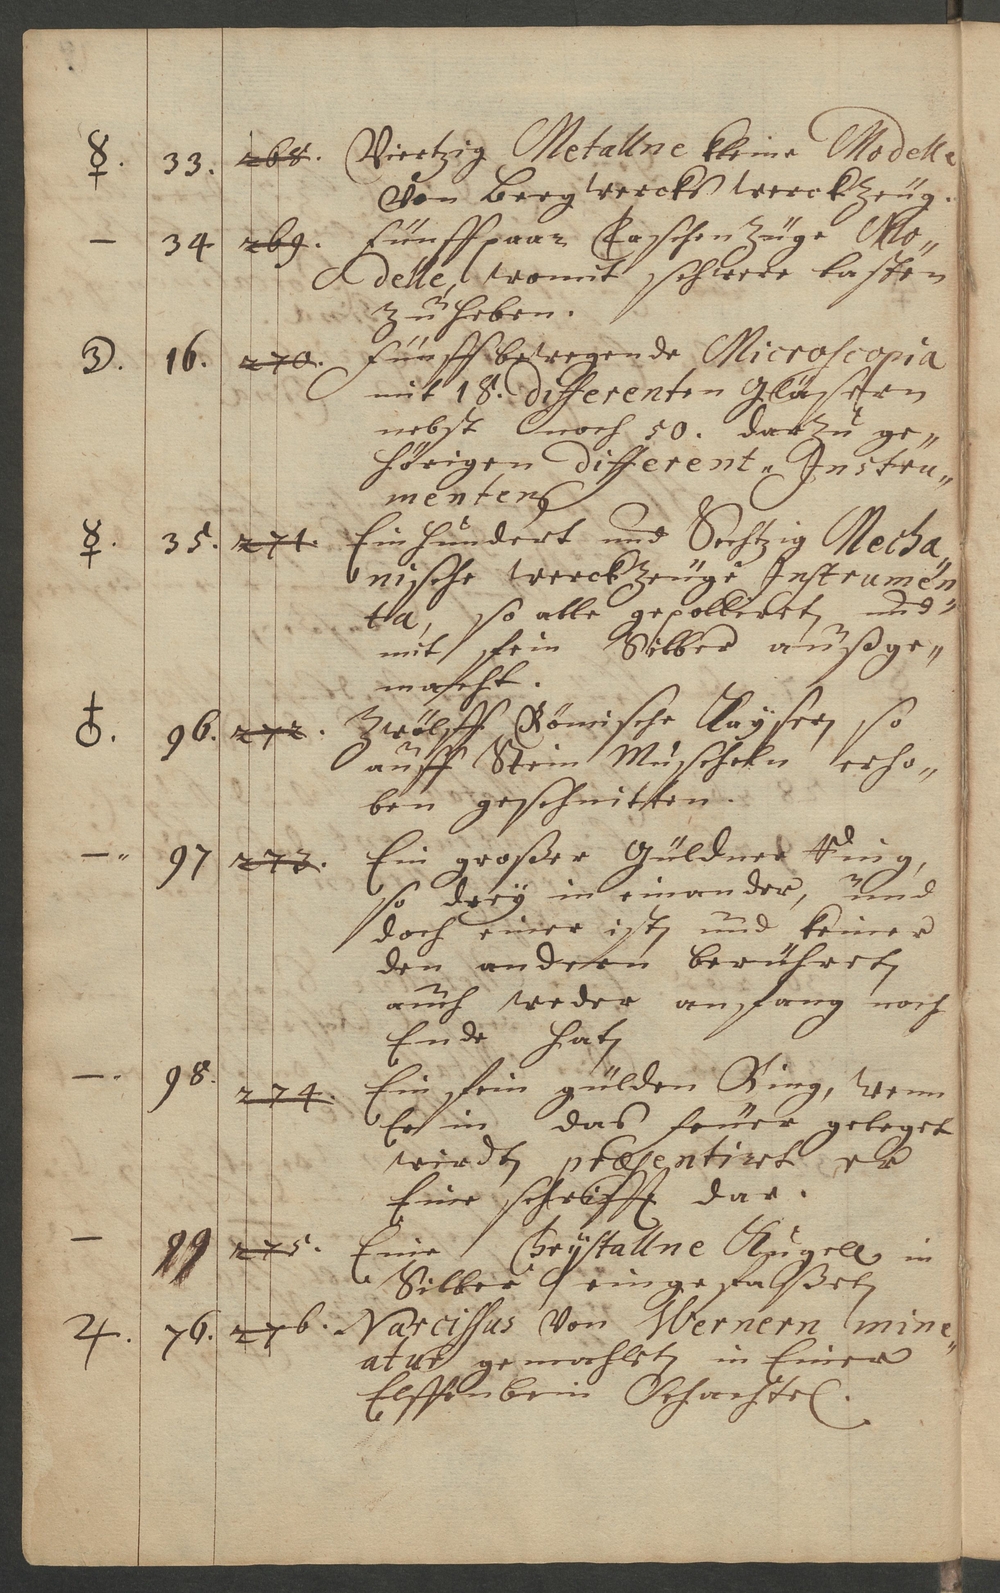 ☿. 33. 268. Viertzig Metallne kleine Modelle
von Bergwercks werckzeüg.
— 34 269. Fünff paar Flaschenzüge Mo„
delle, womit schwere lasten
zu heben.
☽. 16. 270. Fünff bewegende Microscopia
mit 18. differenten Gläsern
nebst noch 50. darzu ge„
hörigen different„ Instru„
menten
☿. 35. 271. Ein hundert und Sechtzig Mecha„
nische werckzeüge Instrumen„
ta, so alle gepolliret, und
mit fein Silber außge„
macht.
♁. 96. 272. Zwölff Römische Kayser, so
auff Stein Muscheln erho„
ben geschnitten.
—„ 97 273. Ein großer Güldner Ring,
so drey in einander, und
doch einer ist, und keiner
den andern berühret,
auch weder anfang noch
Ende hat,
—. 98. 274. Ein fein gülden Ring, wenn
Er in das feuer geleget
wirdt, præsentiret er
Eine schrifft dar.
— 99 275. Eine Chrystallne Kugell, in
Silber eingefasset,
♃. 76. 276. Narcissus von Wernern mine„
atur gemahlet, in Einer
Elffenbein Schachtel.